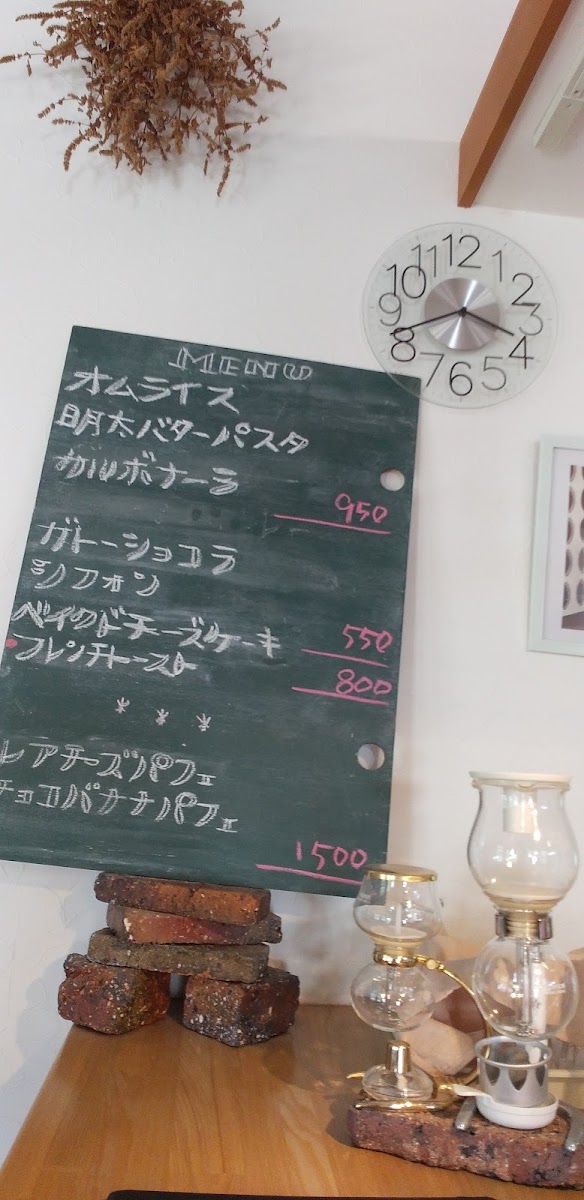 MENU
オムライス
明太バターパスタ
カルボナーラ
950
ガトーショコラ
シフォン
ベイクドチーズケーキ 550
フレンチトースト 800
* * *
レアチーズパフェ
チョコバナナパフェ
1500
12
1
2
3
4
5
6
7
8
9
10
11